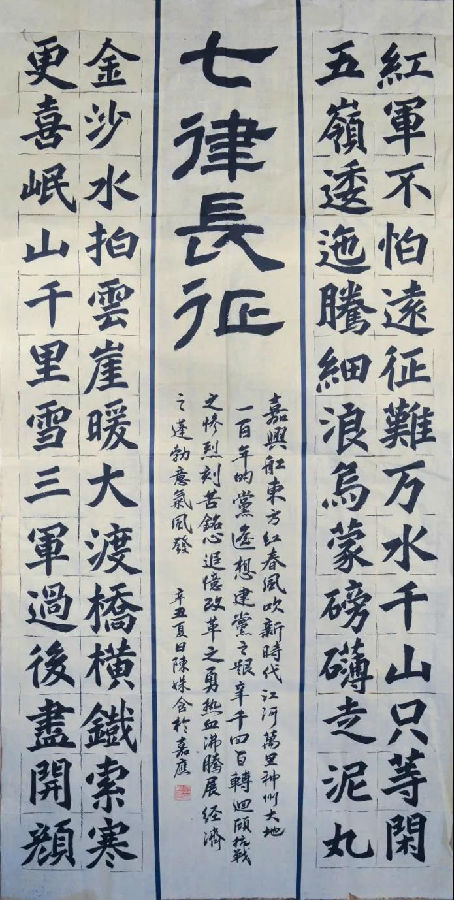 紅軍不怕遠征難万水千山只等閑
五嶺逶迤騰細浪烏蒙磅礴走泥丸
七律長征
嘉興舡東方紅春風吹新時代江河萬里神州大地
一百年的黨遙想建黨之艱辛千回百轉迴顧抗戰
之慘烈刻苦銘心追憶改革之勇熱血沸騰展經濟
之蓬勃意氣風發 辛丑夏日陳於嘉應
金沙水拍雲崖暖大渡橋橫鐵索寒
更喜岷山千里雪三軍過後盡開顏